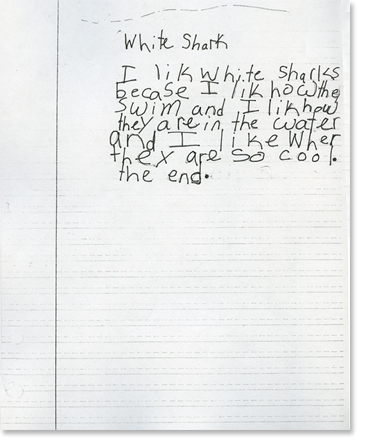 White Shark
I lik white sharks
becase I lik how the
swim and I lik how
they are in the water
and I like Wher
they are so cool.
the end.